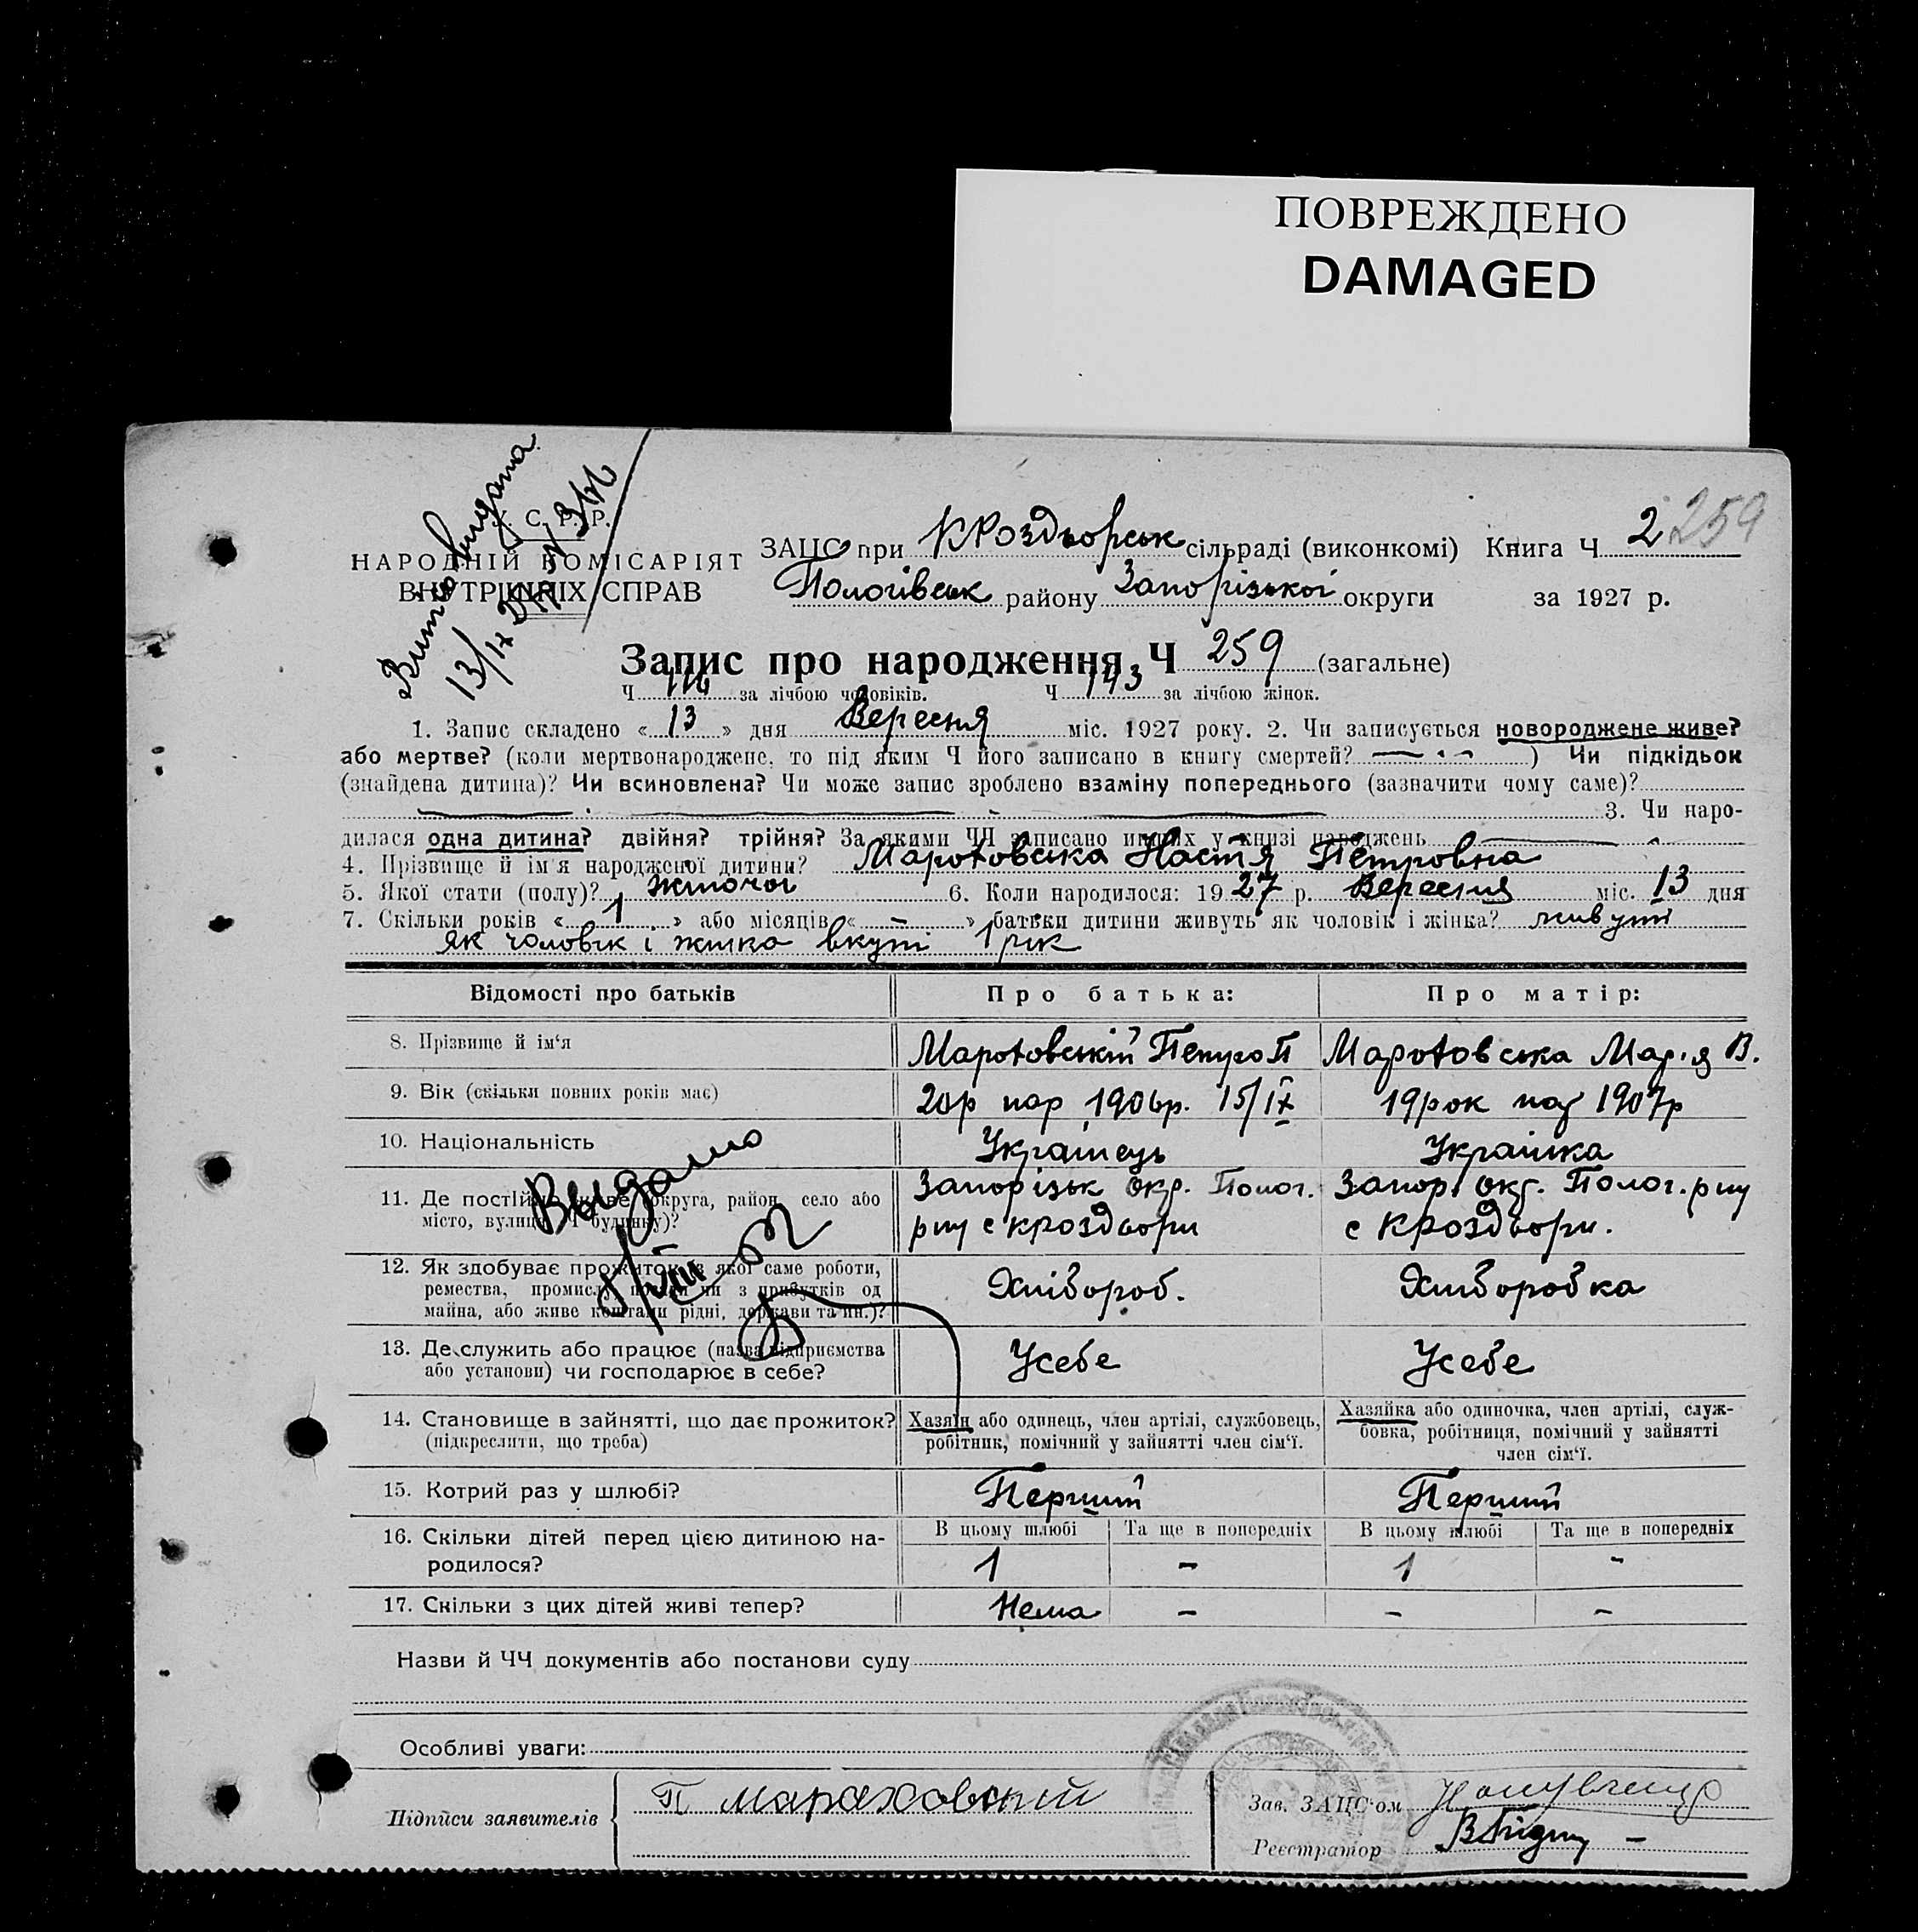 ПОВРЕЖДЕНО
DAMAGED
259
У. С. Р. Р.
НАРОДНІЙ КОМІСАРІЯТ
ВНУТРІШНІХ СПРАВ
Витяг видана
13/IX
ЗАЦС при К Роздьорськ сільраді (виконкомі) Книга Ч 2
Пологівськ району Запорізької округи за 1927 р.
Запис про народження Ч 259 (загальне)
Ч 116 за лічбою чоловіків. Ч 143 за лічбою жінок.
1. Запис складено « 13 » дня Вересня міс. 1927 року. 2. Чи записується новороджене живе?
або мертве? (коли мертвонароджене, то під яким Ч його записано в книгу смертей? ) Чи підкідьок
(знайдена дитина)? Чи всиновлена? Чи може запис зроблено взаміну попереднього (зазначити чому саме)?
3. Чи наро-
дилася одна дитина? двійня? трійня? За якими ЧЧ записано инших у книзі народжень
4. Прізвище й ім'я народженої дитини? Мароховська Настя Петровна
5. Якої стати (полу)? жіночої 6. Коли народилося: 1927 р. Вересня міс. 13 дня
7. Скільки років « 1 » або місяців « – » батьки дитини живуть як чоловік і жінка? живуть
як чоловік і жінка вкупі 1 рік
Відомості про батьків Про батька: Про матір:
8. Прізвище й ім'я Мароховській Петро П Мароховська Марія В.
9. Вік (скільки повних років має) 20р нар 1906р. 15/IX 19рок нар 1907р
10. Національність Українець Українка
11. Де постійно живе (округа, район, село або
місто, вулиця, Ч будинку)?
Запорізьк окр. Полог.
рну с Кроздори
Запор. окг. Полог. рну
с Кроздьори.
Видано
12. Як здобуває прожиток: з якої саме роботи,
ремества, промислу, посади чи з прибутків од
майна, або живе коштами рідні, держави та ин.)?
Хлібороб. Хліборобка
13. Де служить або працює (назва підприємства
або установи) чи господарює в себе?
Усебе Усебе
14. Становище в зайнятті, що дає прожиток?
(підкреслити, що треба)
Хазяїн або одинець, член артілі, службовець,
робітник, помічний у зайнятті член сім'ї.
Хазяйка або одиночка, член артілі, служ-
бовка, робітниця, помічний у зайнятті
член сім'ї.
15. Котрий раз у шлюбі? Перший Перший
16. Скільки дітей перед цією дитиною на-
родилося?
В цьому шлюбі Та ще в попередніх В цьому шлюбі Та ще в попередніх
1 – 1 –
17. Скільки з цих дітей живі тепер? Нема – – –
Назви й ЧЧ документів або постанови суду
Особливі уваги:
Підписи заявителів П мараховский
Зав. ЗАЦС'ом
Реєстратор